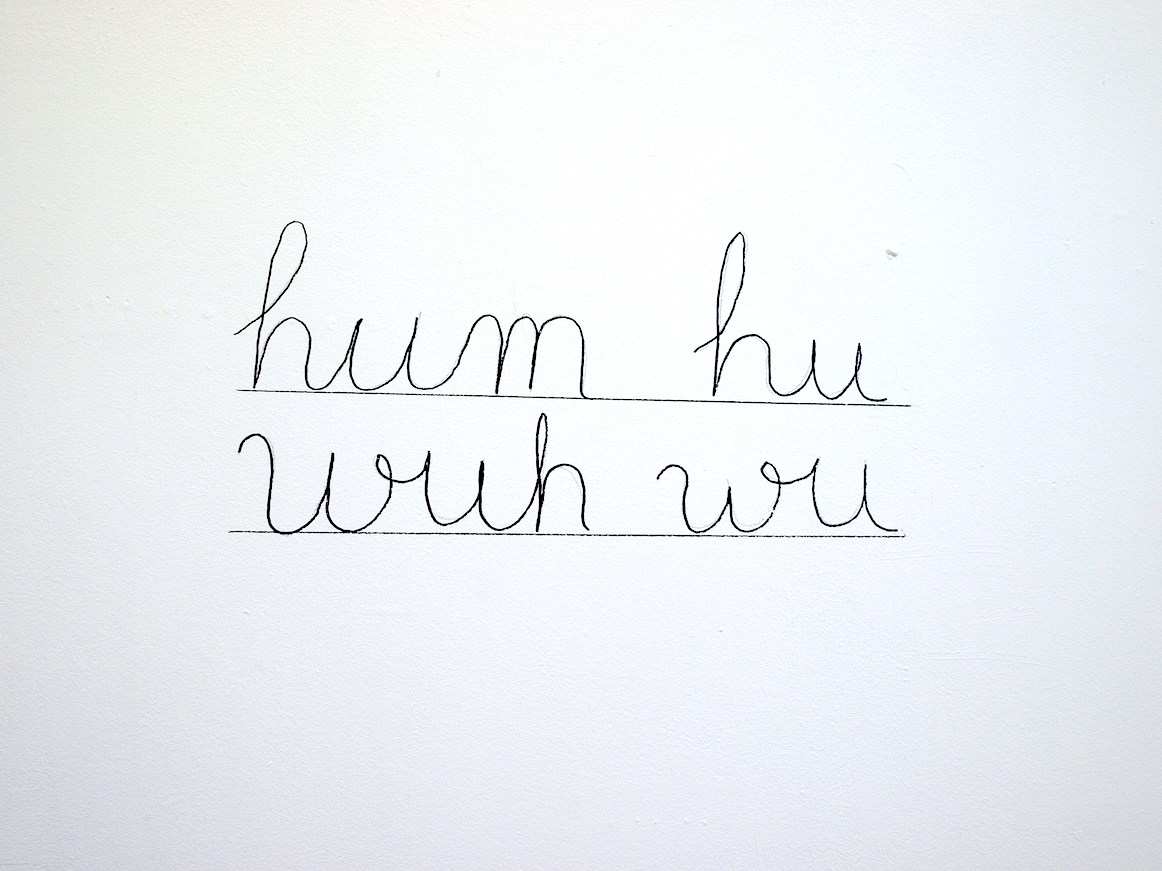 hum hu
wuh wu